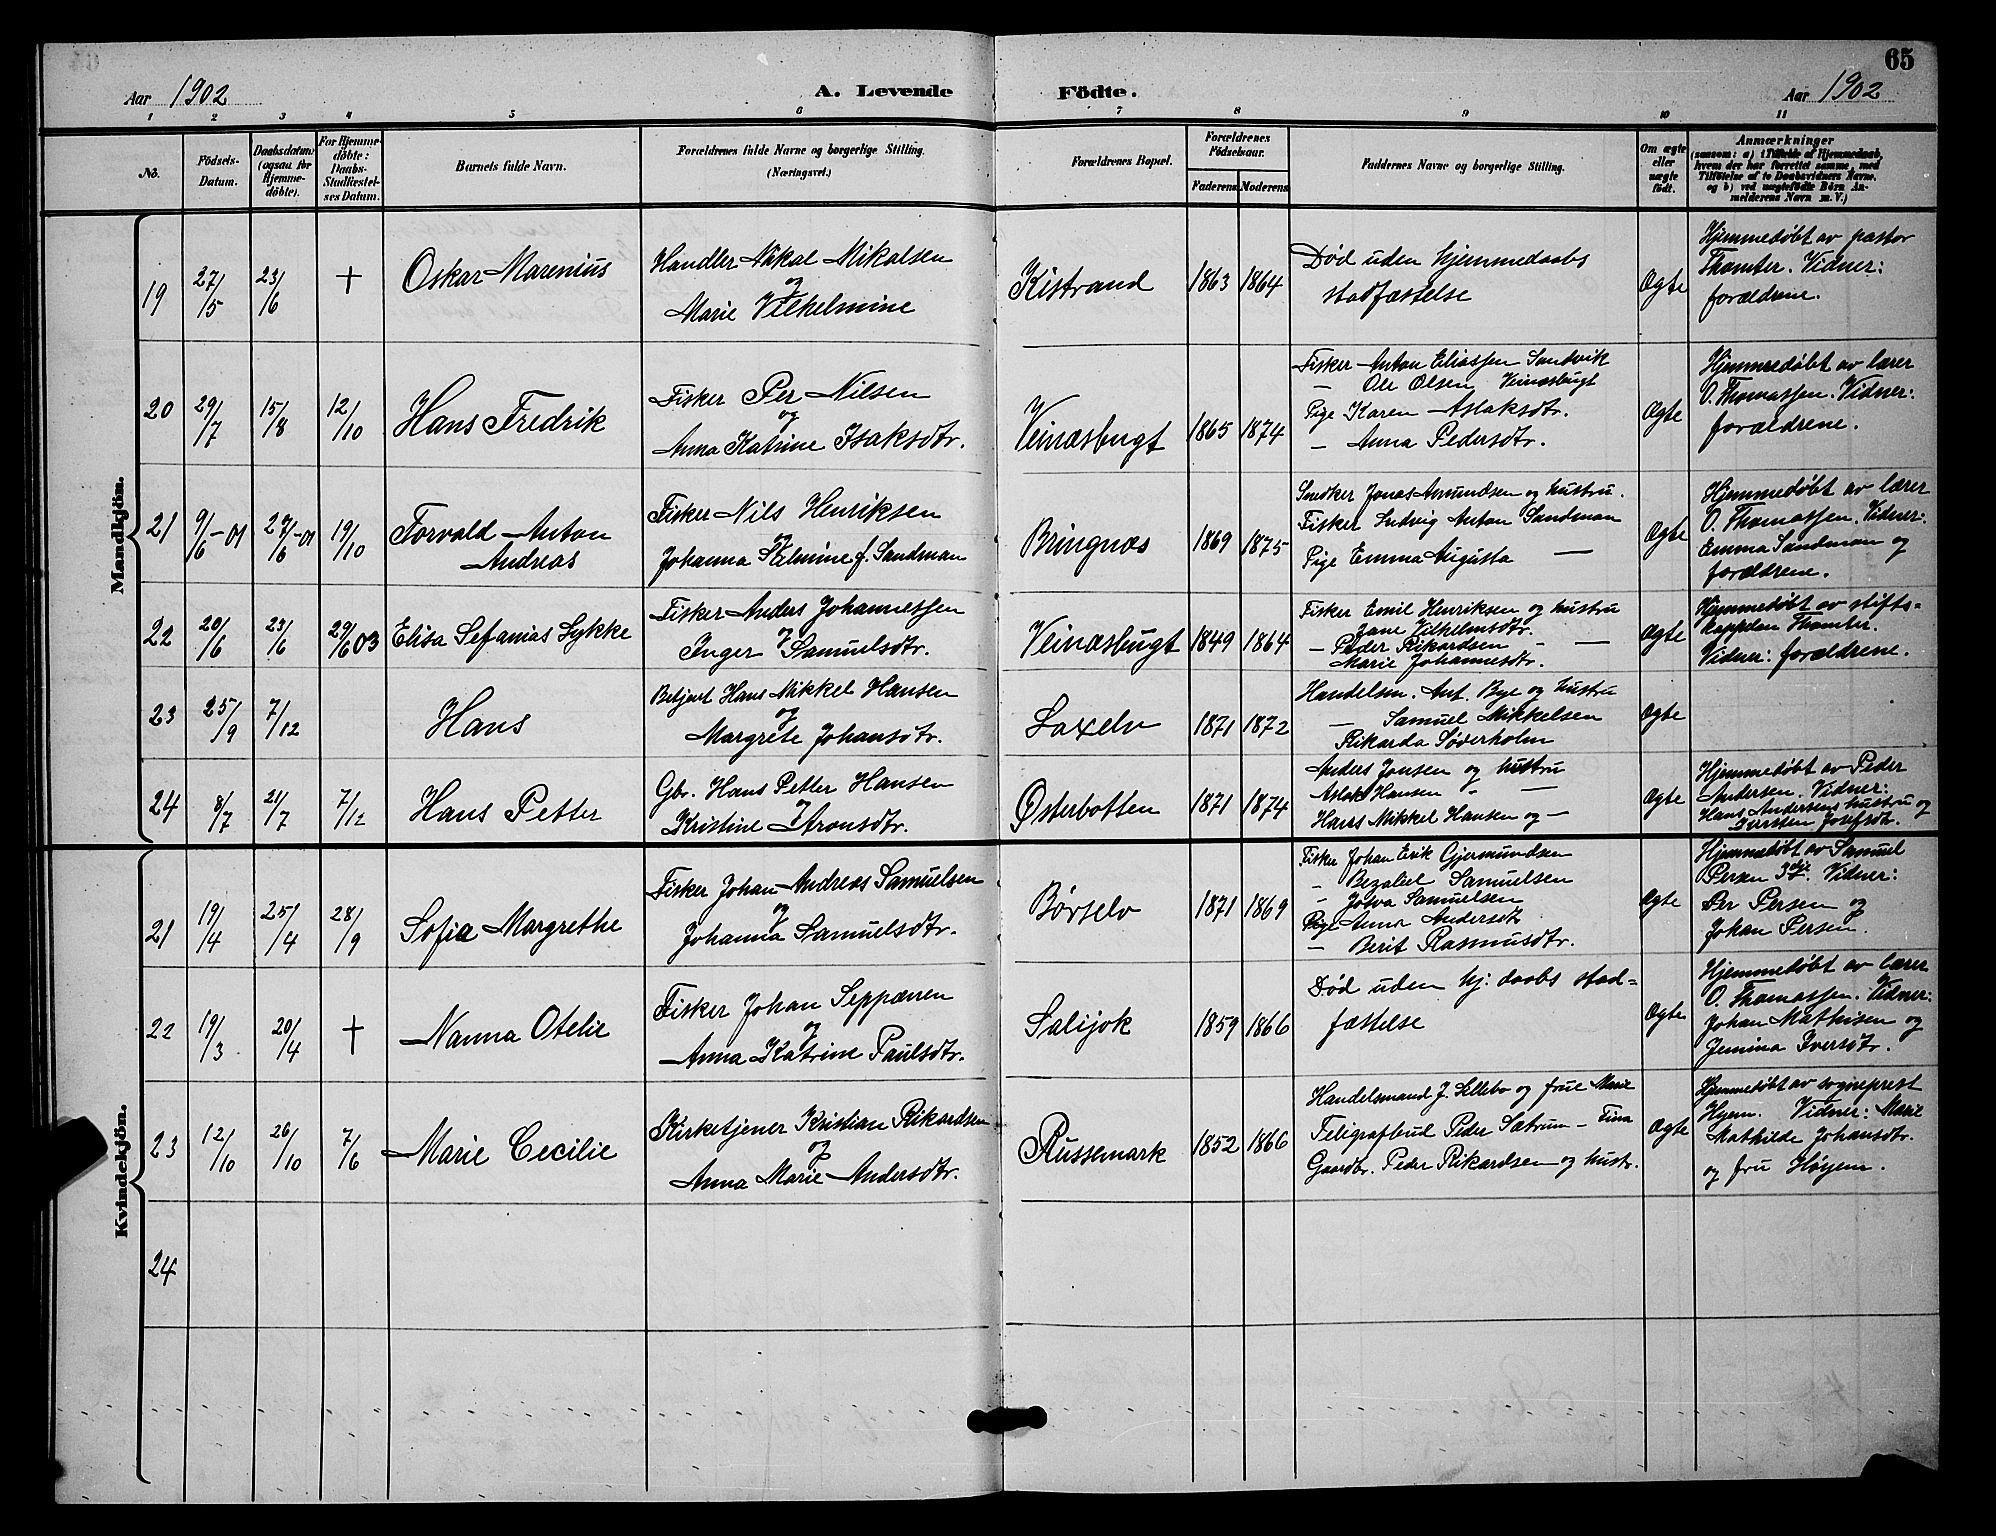 65
Aar 1902
A. Levende Födte.
Aar 1902
1 2 3 4 5 6 7 8 9 10 11
No.
Födsels-
Datum.
Daabsdatum
(ogsaa for
Hjemme-
döbte).
For Hjemme-
döbte:
Daabs-
Stadfæstel-
ses Datum.
Barnets fulde Navn.
Forældrenes fulde Navne og borgerlige Stilling.
(Næringsvei.)
Forældrenes Bopæl.
Forældrenes
Födselsaar.
Faderens
Moderens
Faddernes Navne og borgerlige Stilling.
Om ægte
eller
uægte
födt.
Anmærkninger
(saasom: a) i Tilfælde af Hjemmedaab,
hvem der har forrettet samme, med
Tilföielse af to Daabsvidners Navne,
og b) ved uægtefödte Börn An-
melderens Navn m. V.)
Mandkjön.
19
27/5
23/6
+
Oskar Marenius
Handler Nikal Mikalsen
og
Marie Vilhelmine
Kistrand
1863
1864
Död uden hjemmedaabs
stadfæstelse
Ægte
Hjemmedøbt av pastor
Thomter. Vidner:
forældrene.
20
29/7
15/8
12/10
Hans Fredrik
Fisker Per Nilsen
og
Anna Katrine Isaksdtr.
Veinæsbugt
1865
1874
Fisker Anton Eliassen Sandvik
— Ole Olsen Veinæsbugt
Pige Karen Aslaksdtr.
— Anna Pedersdtr.
Ægte
Hjemmedøbt av lærer
O. Thomassen. Vidner:
forældrene.
21
9/6-01
27/6-01
19/10
Torvald Anton
Andreas
Fisker Nils Henriksen
og
Johanna Helmine f. Sandman
Bringnæs
1869
1875
Snedker Jonas Amundsen og hustru.
Fisker Ludvig Anton Sandman
Pige Emma Augusta —
Ægte
Hjemmedøbt av lærer
O. Thomassen. Vidner:
Emma Sandman og
forældrene.
22
20/6
23/6
29/6 03
Elisa Sefanias Lykke
Fisker Anders Johannessen
og
Inger Samuelsdtr.
Veinæsbugt
1849
1864
Fisker Emil Henriksen og hustru
Jane Vilhelmsdtr.
— Peder Rikardsen - —
Marie Johannesdtr.
Ægte
Hjemmedøbt av stifts-
kappelan Thomter.
Vidner: forældrene.
23
25/9
7/12
Hans
Betjent Hans Mikkel Hansen
og
Margrete Johansdtr.
Laxelv
1871
1872
Handelsm. Ant. Bye og hustru
— Samuel Mikkelsen
Rikarda Søderholm
Ægte
24
8/7
21/7
7/12
Hans Petter
Gbr. Hans Petter Hansen
og
Kristine Aronsdtr.
Østerbotten
1871
1874
Anders Jonsen og hustru
Aslak Hansen " —
Hans Mikkel Hansen og —
Ægte
Hjemmedøbt av Peder
Andersen. Vidner:
Hans Andersens hustru og
Kirsten Josefsdtr.
Kvindekjön.
21
19/4
25/4
28/9
Sofia Margrethe
Fisker Johan Andreas Samuelsen
og
Johanna Samuelsdtr.
Børselv
1871
1869
Fisker Johan Erik Gjermundsen
" Bezaliel Samuelsen
" Josva Samuelsen
Pige Anna Andersdtr
— Berit Rasmusdtr.
Ægte
Hjemmedøbt av Samuel
Persen. Vidner:
Per Persen og
Johan Persen.
22
19/3
20/4
+
Nanna Otelie
Fisker Johan Seppænen
og
Anna Katrine Paulsdtr.
Salijok
1859
1866
Død uden hj. daabs stad-
fæstelse
Ægte
Hjemmedøbt av lærer
O. Thomassen. Vidner:
Johan Mathisen og
Jemina Iversdtr.
23
12/10
26/10
7/6
Marie Cecilie
Kirketjener Kristian Rikardsen
og
Anna Marie Andersdtr.
Russemark
1852
1866
Handelsmand J. Lillebo og frue Marie
Teligrafbud Peder Sætrum — Tina
Gaardbr. Peder Rikardsen og hustr.
Ægte
Hjemmedøbt av sogneprest
Høyem. Vidner: Marie
Mathilde Johansdtr.
og fru Høyem.
24